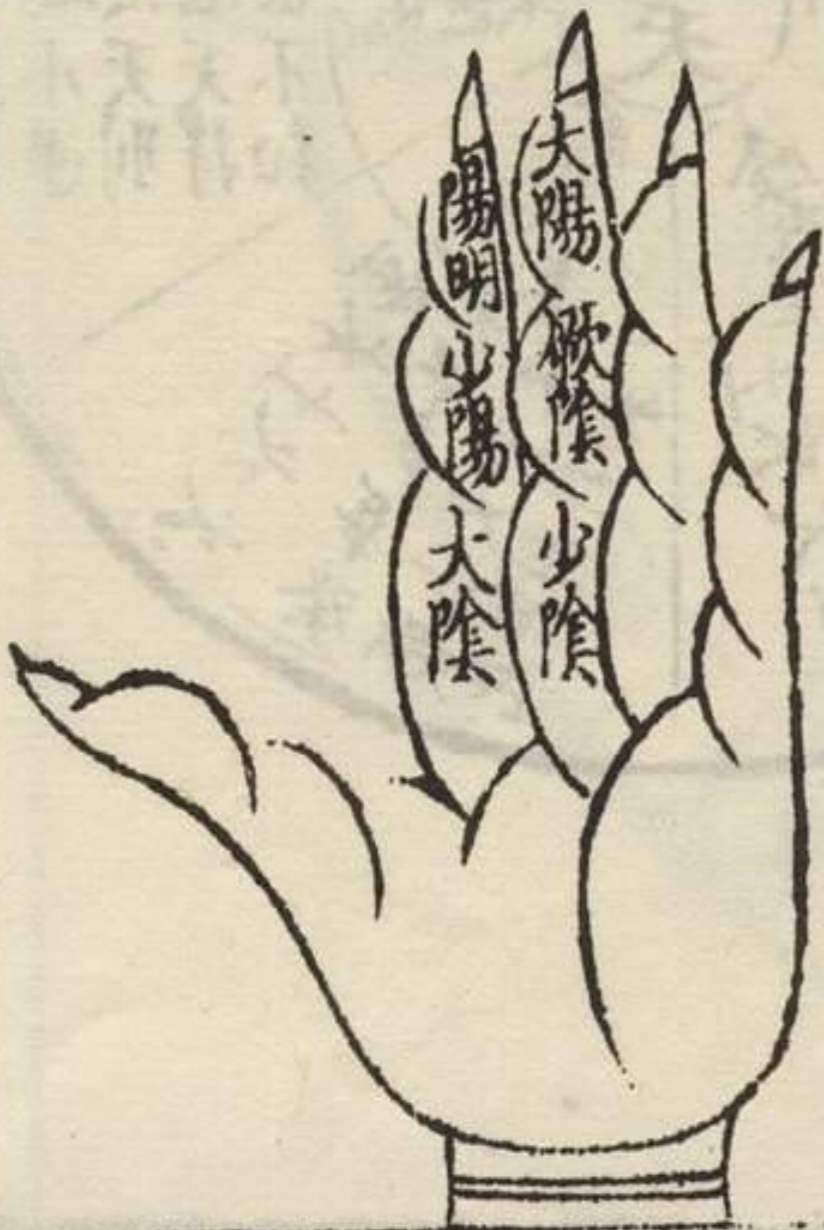 大陽
厥陰
少陰
陽明
少陽
大陰